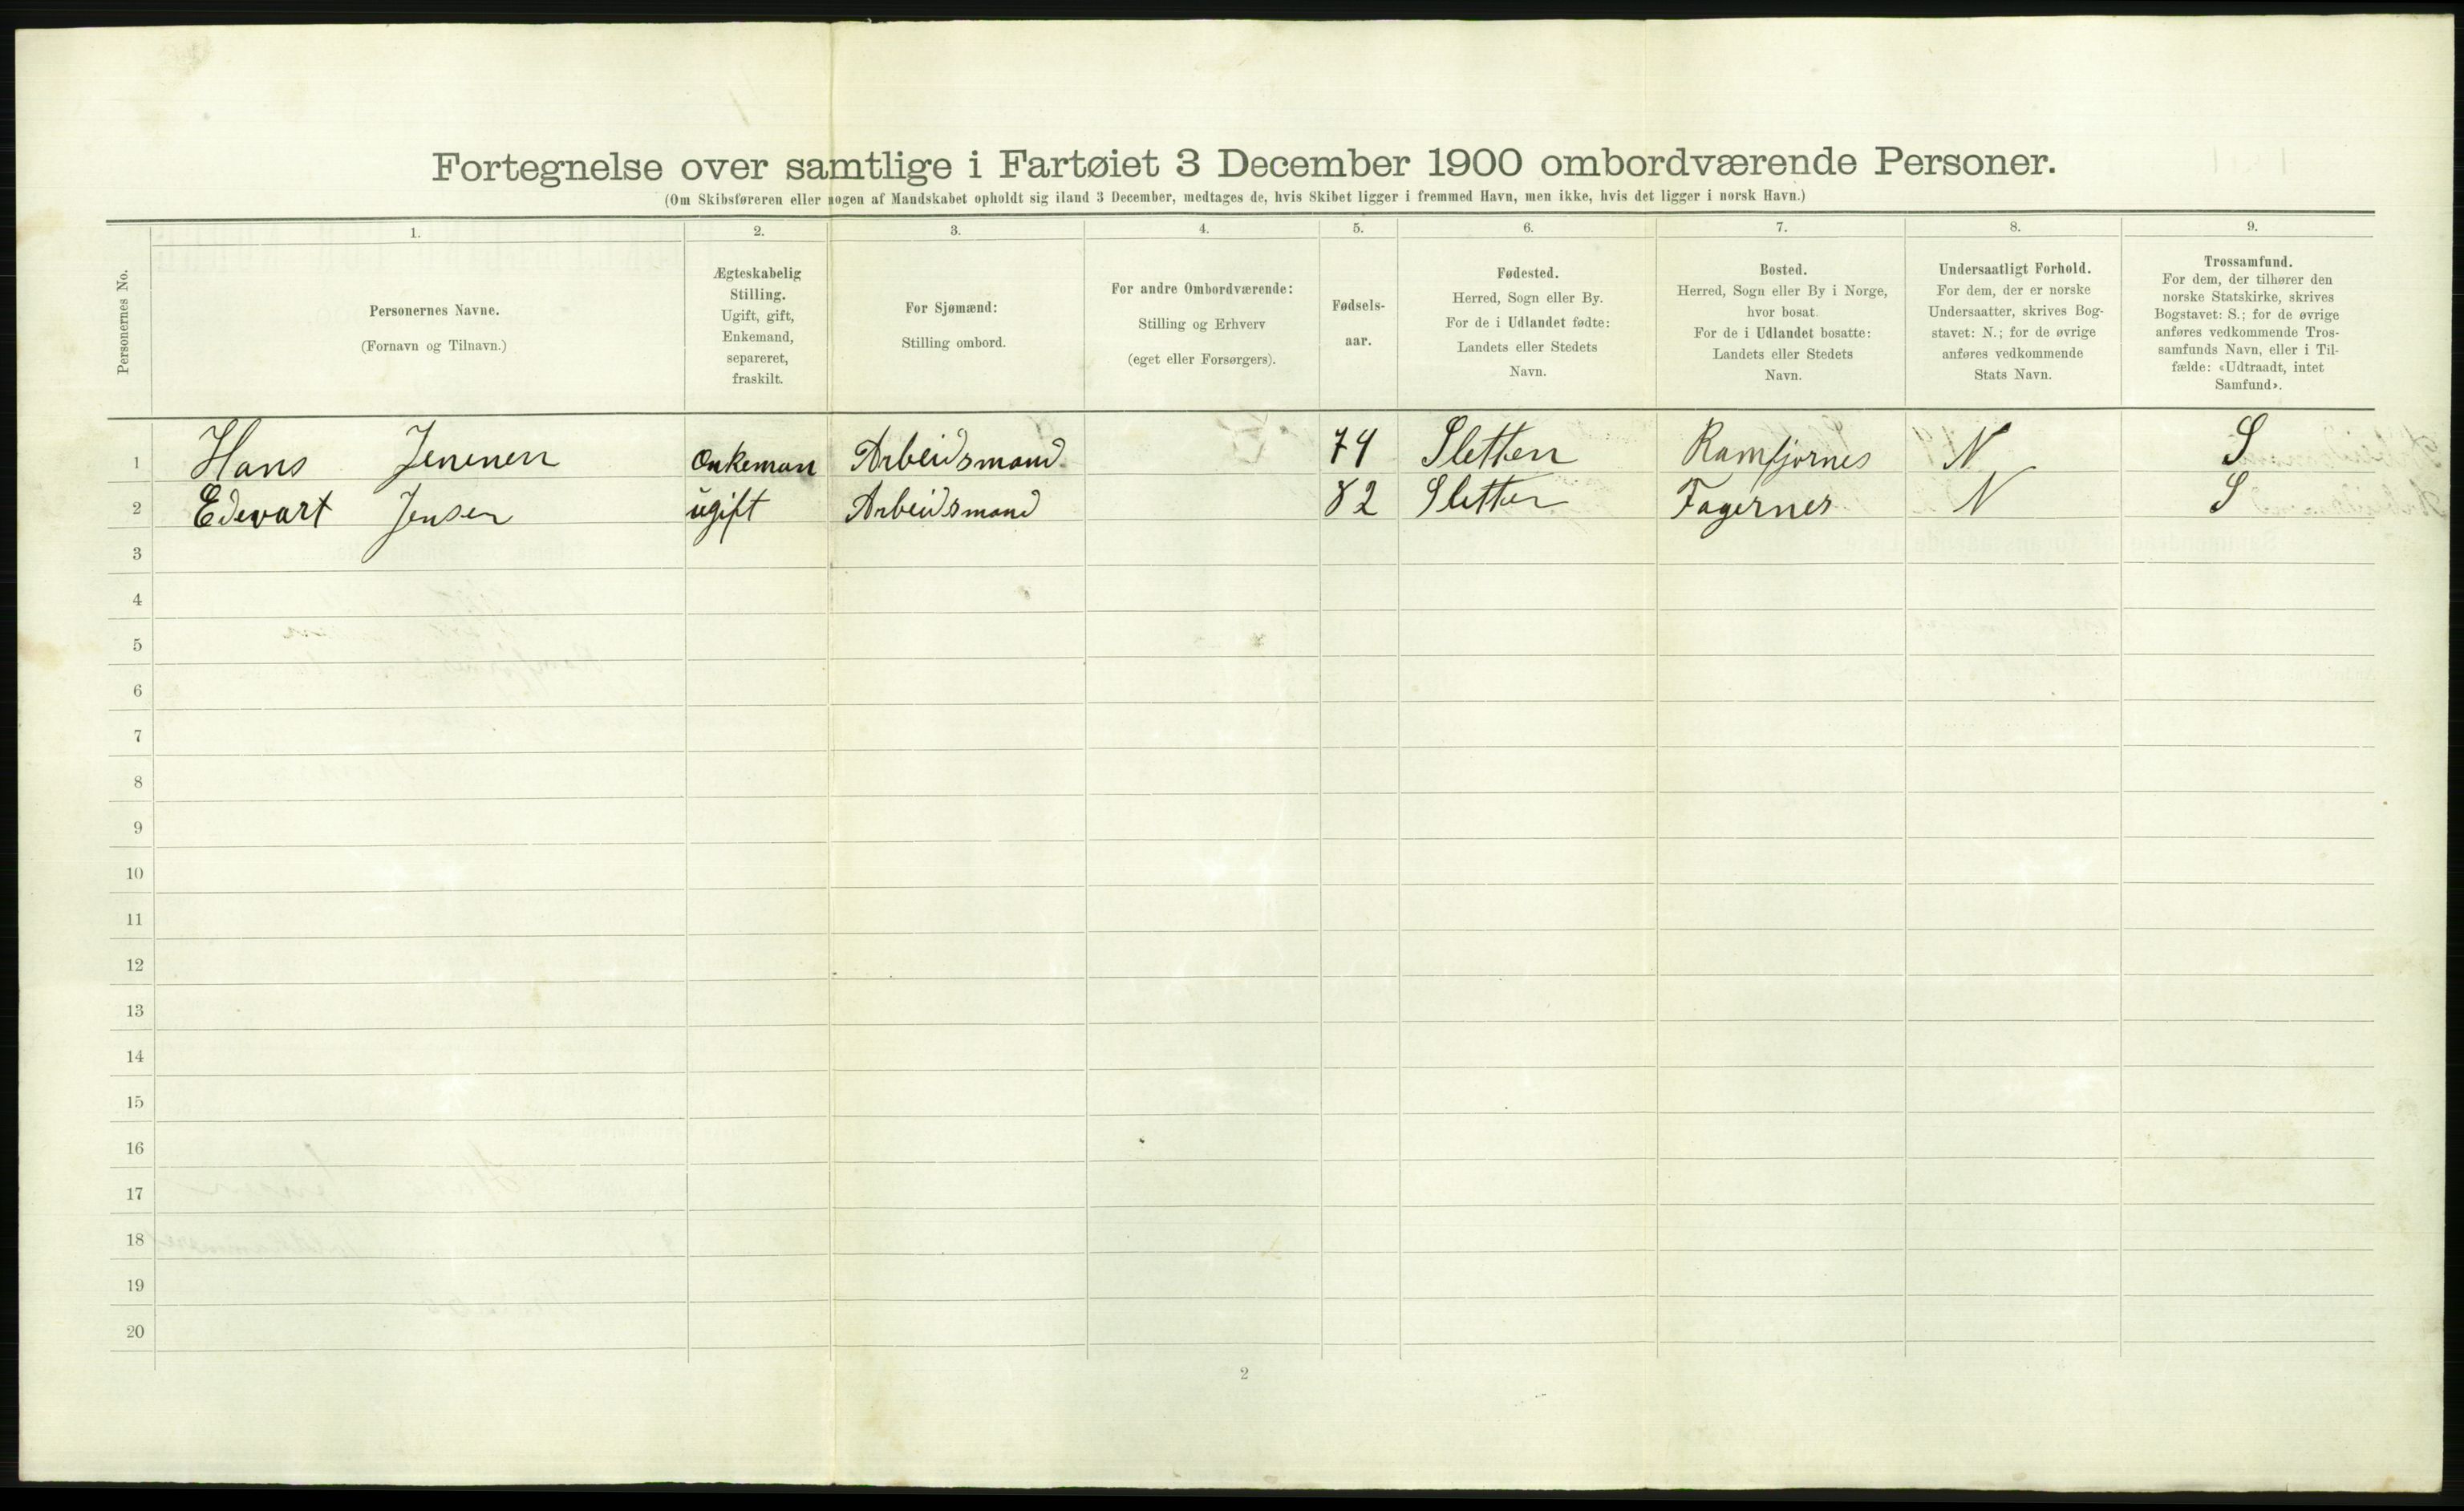 Fortegnelse over samtlige i Fartøiet 3 December 1900 ombordværende Personer.
(Om Skibsføreren eller nogen af Mandskabet opholdt sig iland 3 December, medtages de, hvis Skibet ligger i fremmed Havn, men ikke, hvis det ligger i norsk Havn.)
1. 2. 3. 4. 5. 6. 7. 8. 9.
Personernes No.
Personernes Navne.
(Fornavn og Tilnavn.)
Ægteskabelig
Stilling.
Ugift, gift,
Enkemand,
separeret,
fraskilt.
For Sjømænd:
Stilling ombord.
For andre Ombordværende:
Stilling og Erhverv
(eget eller Forsørgers).
Fødsels-
aar.
Fødested.
Herred, Sogn eller By.
For de i Udlandet fødte:
Landets eller Stedets
Navn.
Bosted.
Herred, Sogn eller By i Norge,
hvor bosat.
For de i Udlandet bosatte:
Landets eller Stedets
Navn.
Undersaatligt Forhold.
For dem, der er norske
Undersaatter, skrives Bog-
stavet: N.; for de øvrige
anføres vedkommende
Stats Navn.
Trossamfund.
For dem, der tilhører den
norske Statskirke, skrives
Bogstavet: S.; for de øvrige
anføres vedkommende Tros-
samfunds Navn, eller i Til-
fælde: «Udtraadt, intet
Samfund».
1 Hans Jenenen Onkeman Arbeidsmand 74 Sletten Ramfjornes N S
2 Edevart Jensen ugift Arbeidsmand 82 Sletten Fagernes N S
3
4
5
6
7
8
9
10
11
12
13
14
15
16
17
18
19
20
2